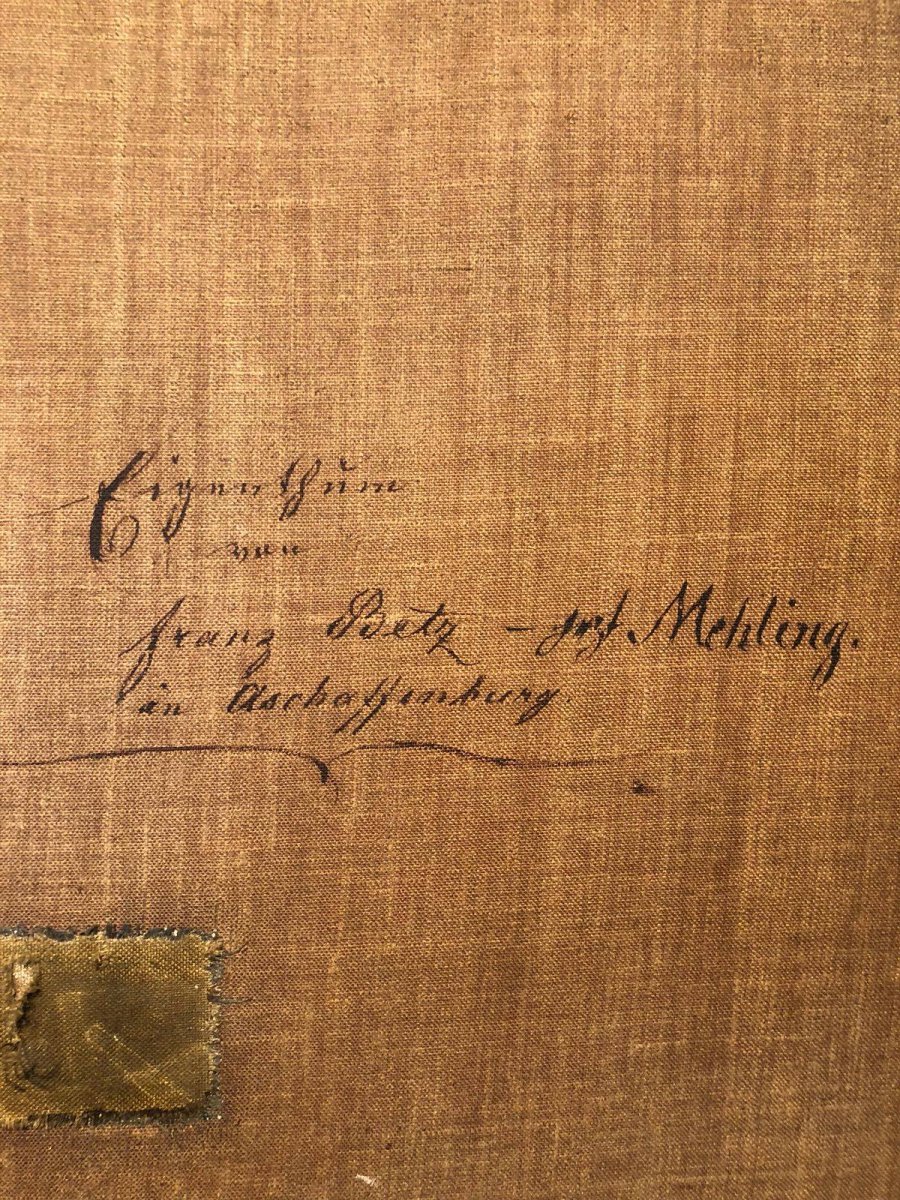 Eigenthum
von
Franz Betz - Mehling.
in Aschaffenburg.